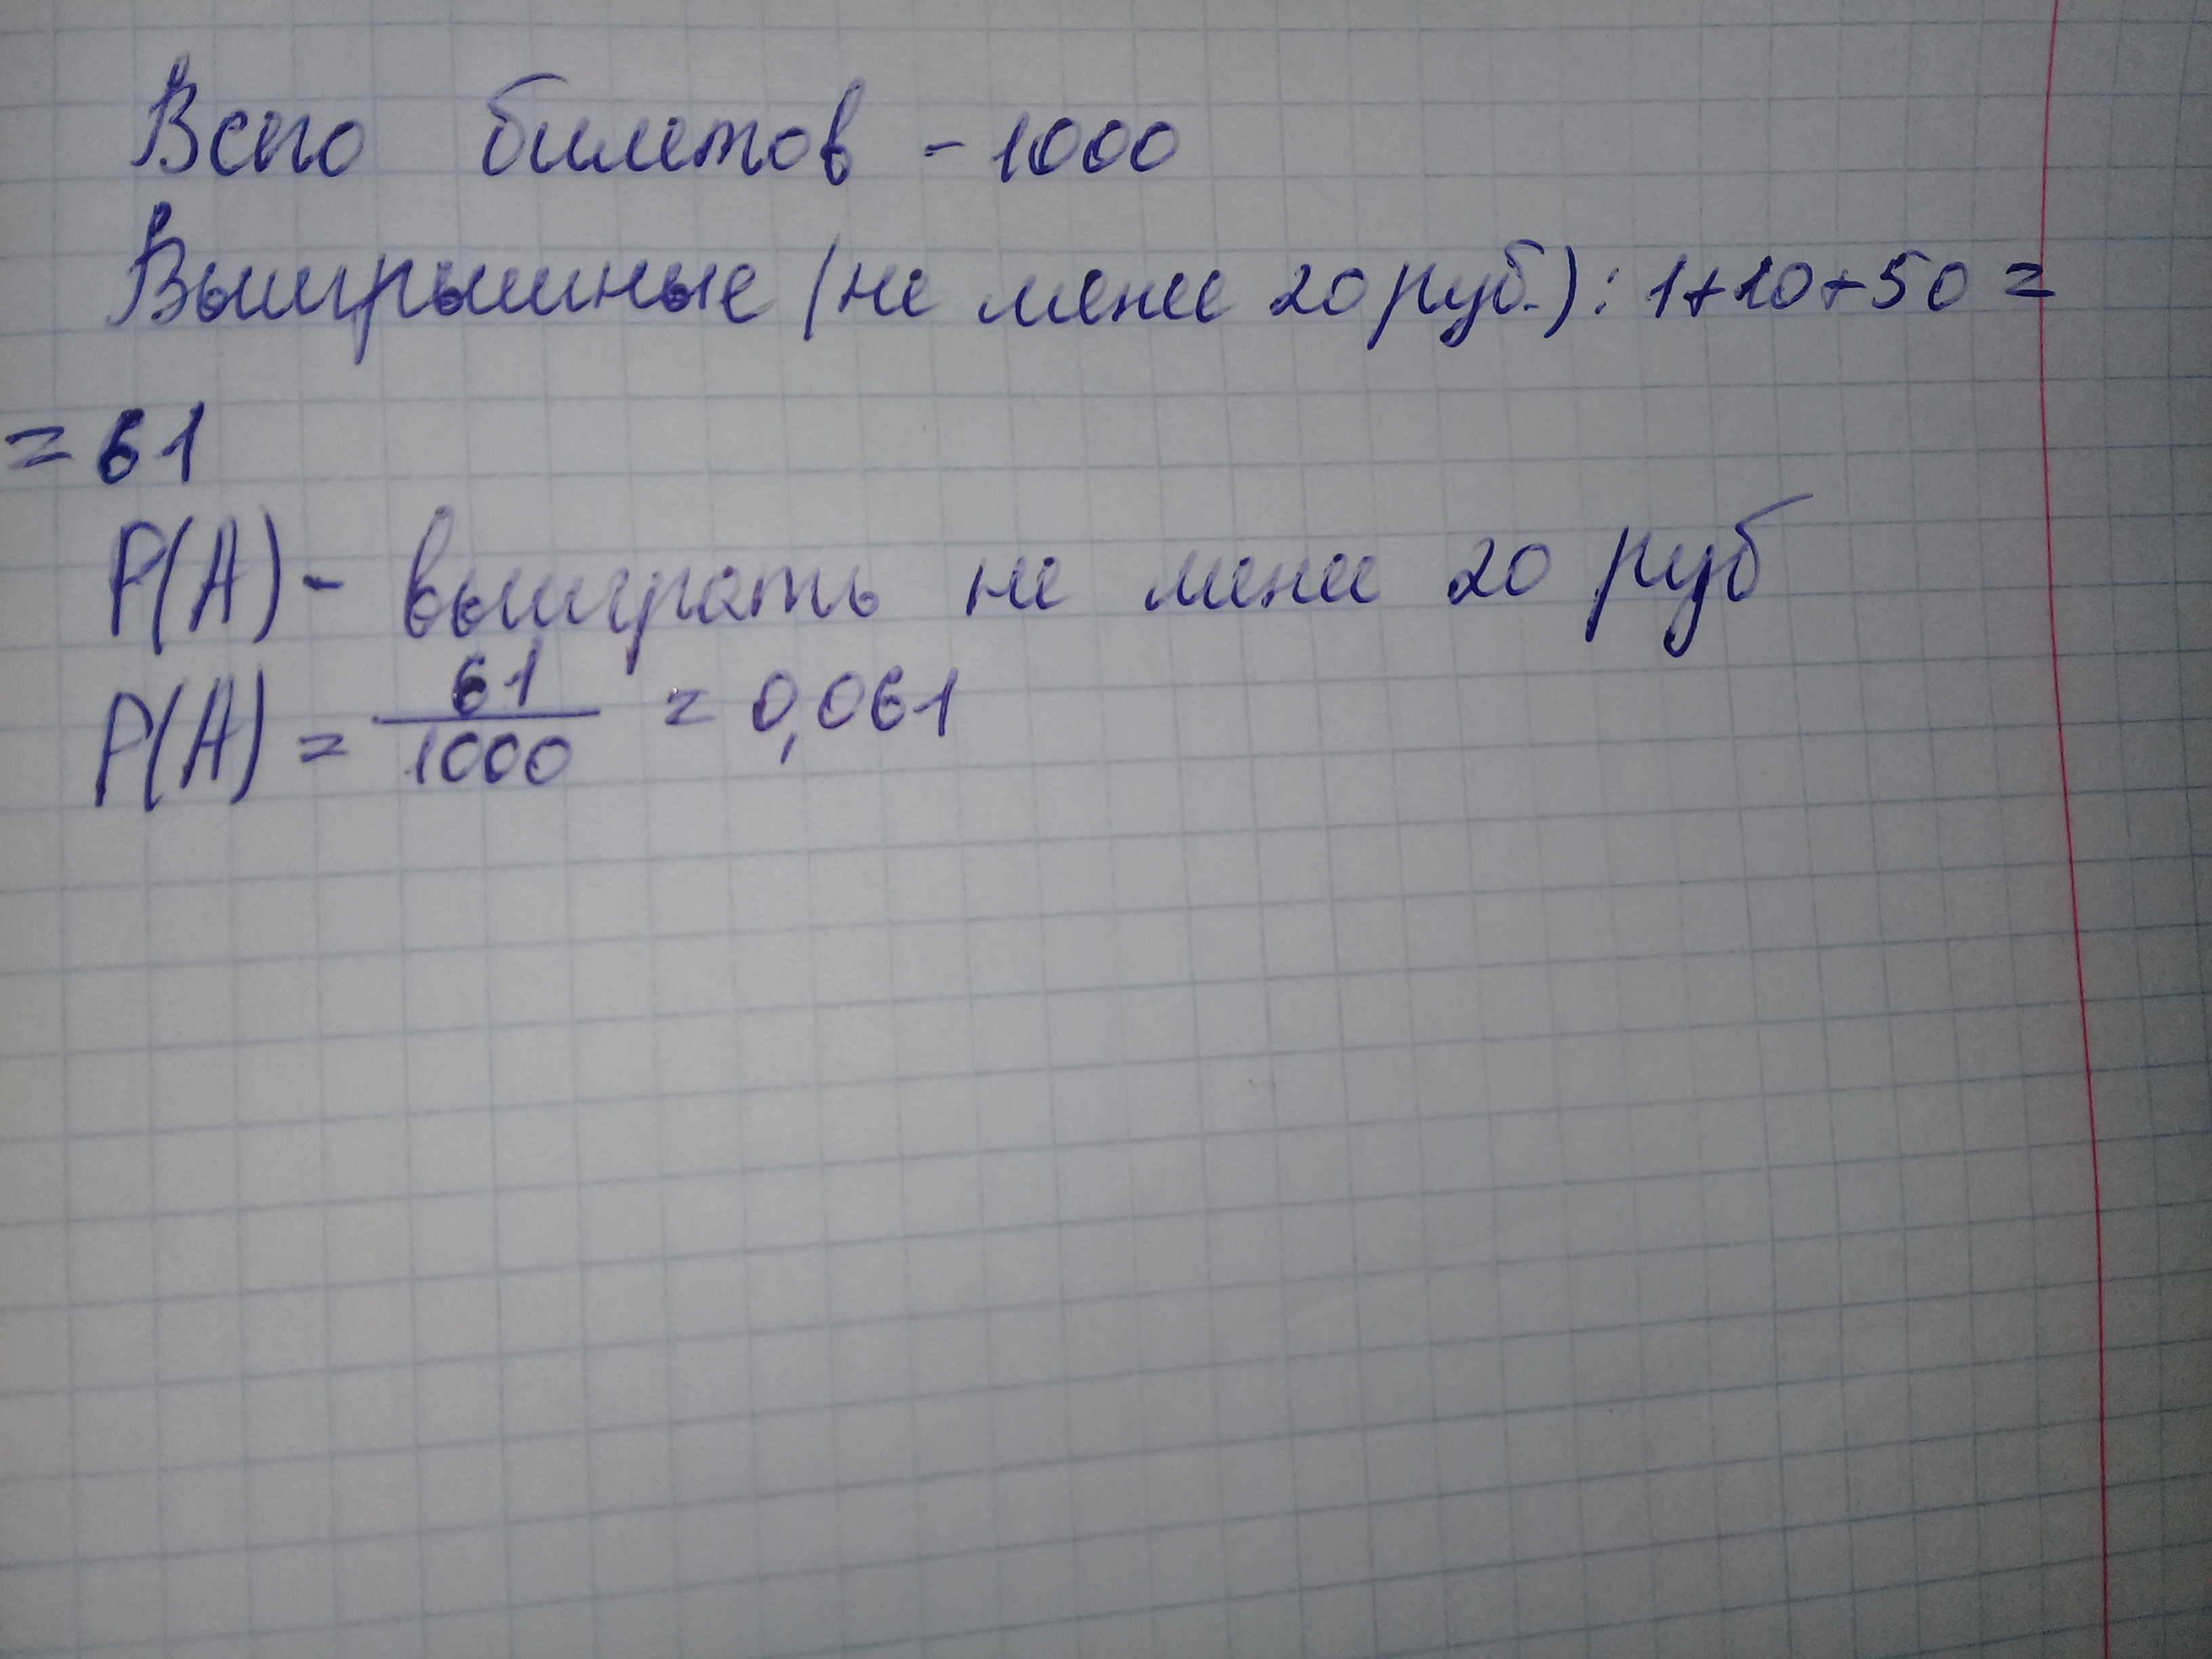 Всего билетов - 1000
Выигрышные (не менее 20 руб.): 1+10+50 =
= 61
P(A) - выиграть не менее 20 руб
P(A) = 61/1000 = 0,061